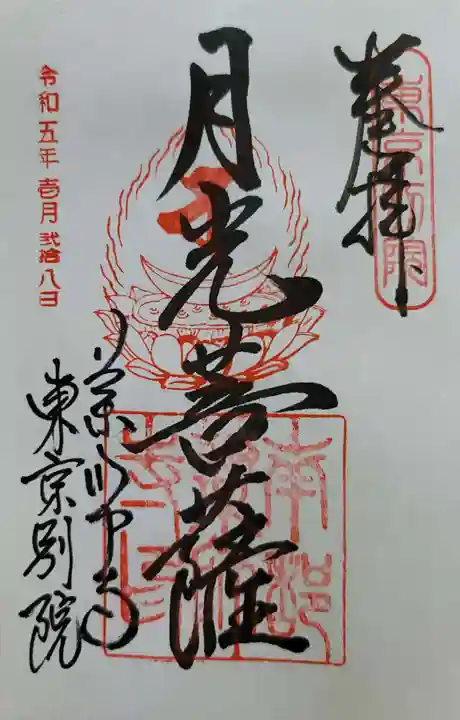 奉拝
東京別院
月光菩薩
令和五年壱月弐拾八日
薬師寺
東京別院